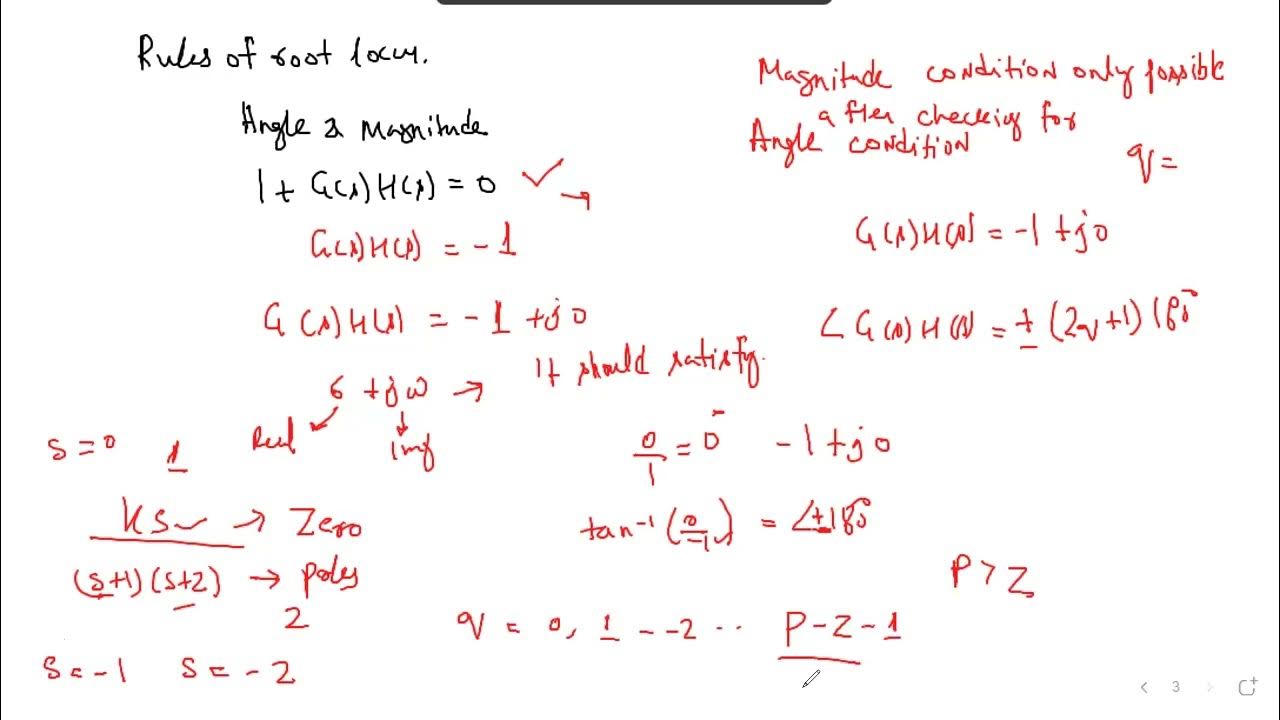 Rules of root locus.
Angle & Magnitude
1 + G(s)H(s) = 0 ✓ →
G(s)H(s) = -1
G(s)H(s) = -1 + j0
6 + jω → It should satisfy.
Real Img
s = 0 1
Ks → Zero
(s+1)(s+2) → poles
2
s = -1 s = -2
Magnitude condition only possible
after checking for
Angle condition
q =
G(s)H(s) = -1 + j0
∠G(s)H(s) = ± (2q+1) 180°
0/1 = 0° -1 + j0
tan⁻¹(0/-1) = ∠±180°
P > Z
q = 0, 1 - -2 .. P-Z-1
3